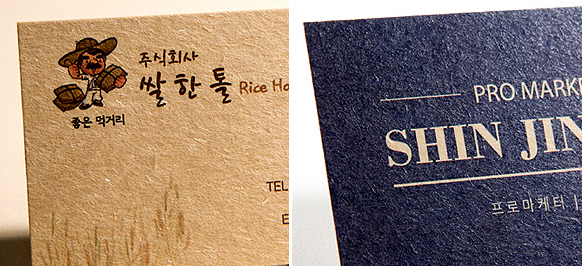 주식회사
쌀 한 톨 Rice
좋은 먹거리
TEL
E
PRO
SHIN
프로마케터 |